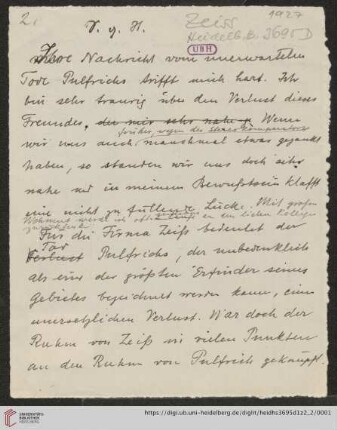 2.
V. g. H.
Zeiss
1927
Heidelb. Hs. 3695 D
UBH
Ihre Nachricht vom unerwarteten
Tode Pulfrichs trifft mich hart. Ich
bin sehr traurig über den Verlust dieses
Freundes, der mir sehr nahe Wenn
früher, wegen des Stereokomparators
wir uns auch manchmal etwas gezankt
haben, so standen wir uns doch sehr
nahe und in meinem Bewußtsein klafft
eine nicht zu füllende Lücke. Mit großer
Wehmut werde ich oft an den lieben Kollegen
zurückdenken.
Für die Firma Zeiß bedeutet der
Tod
Verlust Pulfrichs, der unbedenklich
als einer der größten Erfinder seines
Gebietes bezeichnet werden kann, einen
unersetzlichen Verlust. War doch der
Ruhm von Zeiß in vielen Punkten
an den Ruhm von Pulfrich geknüpft.
UNIVERSITÄTS-
BIBLIOTHEK
HEIDELBERG
https://digi.ub.uni-heidelberg.de/diglit/heidhs3695d1z2_2/0001